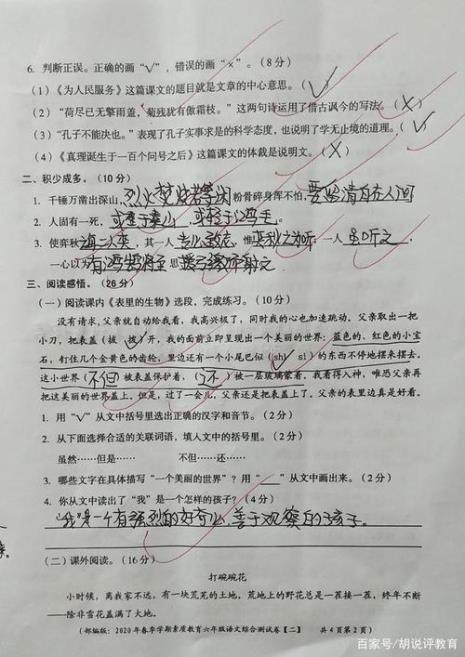 6. 判断正误。正确的画“√”，错误的画“×”。(8分)
(1)《为人民服务》这篇课文的题目就是文章的中心意思。(√)
(2)“荷尽已无擎雨盖，菊残犹有傲霜枝。”这两句诗运用了借古讽今的写法。(X)
(3)“孔子不能决也。”表现了孔子实事求是的科学态度，也说明了学无止境的道理。(√)
(4)《真理诞生于一百个问号之后》这篇课文的体裁是说明文。(X)
二、积少成多。(10分)
1. 千锤万凿出深山，烈火焚烧若等闲 粉骨碎身浑不怕，要留清白在人间
2. 人固有一死，或重于泰山，或轻于鸿毛。
3. 使弈秋诲二人弈，其一人专心致志，惟弈秋之为听；一人虽听之，
一心以为有鸿鹄将至 思援弓缴而射之
三、阅读感悟。(26分)
(一)阅读课内《表里的生物》选段，完成练习。(10分)
没有请求，父亲就自动给我看，我高兴极了，同时我的心也加速跳动。父亲取出一把
小刀，把表盖(拔 拨)开，我的面前立即呈现出一个美丽的世界：蓝色的、红色的小宝
石，钉住几个金黄色的齿轮，里边还有一个小尾巴似(shì sì)的东西不停地摆来摆去。
这小世界(不但)被表盖保护着，(还)被一层玻璃蒙着，我看得入神，唯恐父亲再
把这美丽的世界盖上。但是，过了一会儿，父亲还是把表盖上了。父亲的表里边真是好看。
1. 用“√”从文中括号里选出正确的汉字和音节。(2分)
2. 从下面选择合适的关联词语，填入文中的括号里。(2分)
虽然……但是…… 不但……还……
3. 哪些文字在具体描写“一个美丽的世界”？用“＿”从文中画出来。(2分)
4. 你从文中读出了“我”是一个怎样的孩子？(4分)
“我”是一个有强烈的好奇心，善于观察的孩子。
(二)课外阅读。(16分)
打碗碗花
小时候，离我家不远，有一块荒芜的土地，荒地上的野花总是一茬接一茬，终年不断
——除非雪花盖满了大地。
(部编版：2020年春季学期素质教育六年级语文综合测试卷【二】 共4页第2页)
百家号/胡说评教育